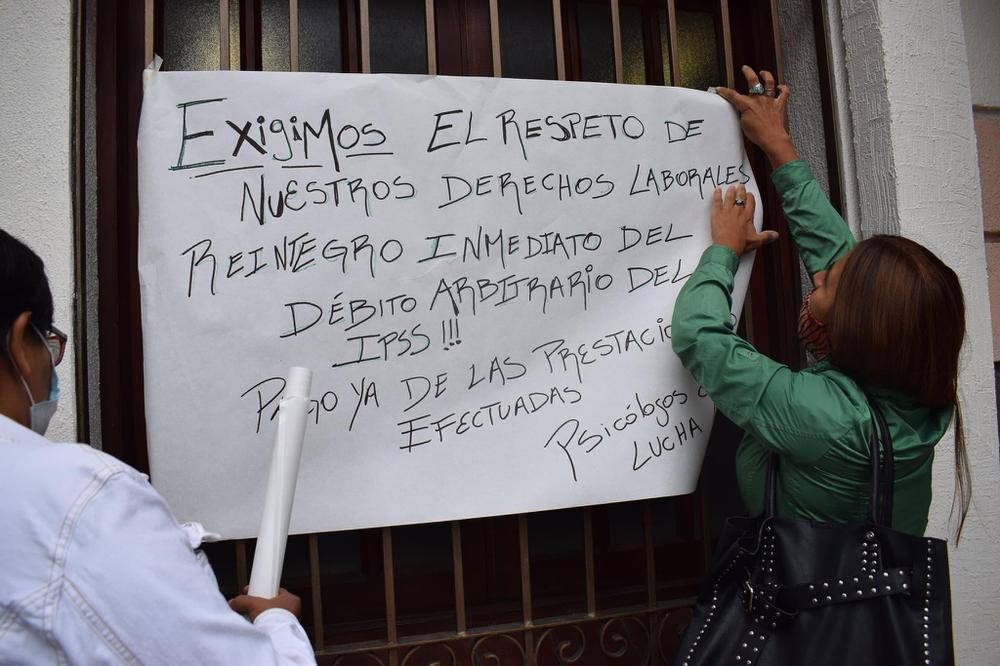 EXigiMos EL RESPETO DE
NUESTROS DERECHOS LABORALES
REINTEGRO INMEDIATO DEL
DÉBITO ARBITRARIO DEL
IPSS !!!
PAGO YA DE LAS PRESTACIO
EFECTUADAS
Psicólogos
LUCHA